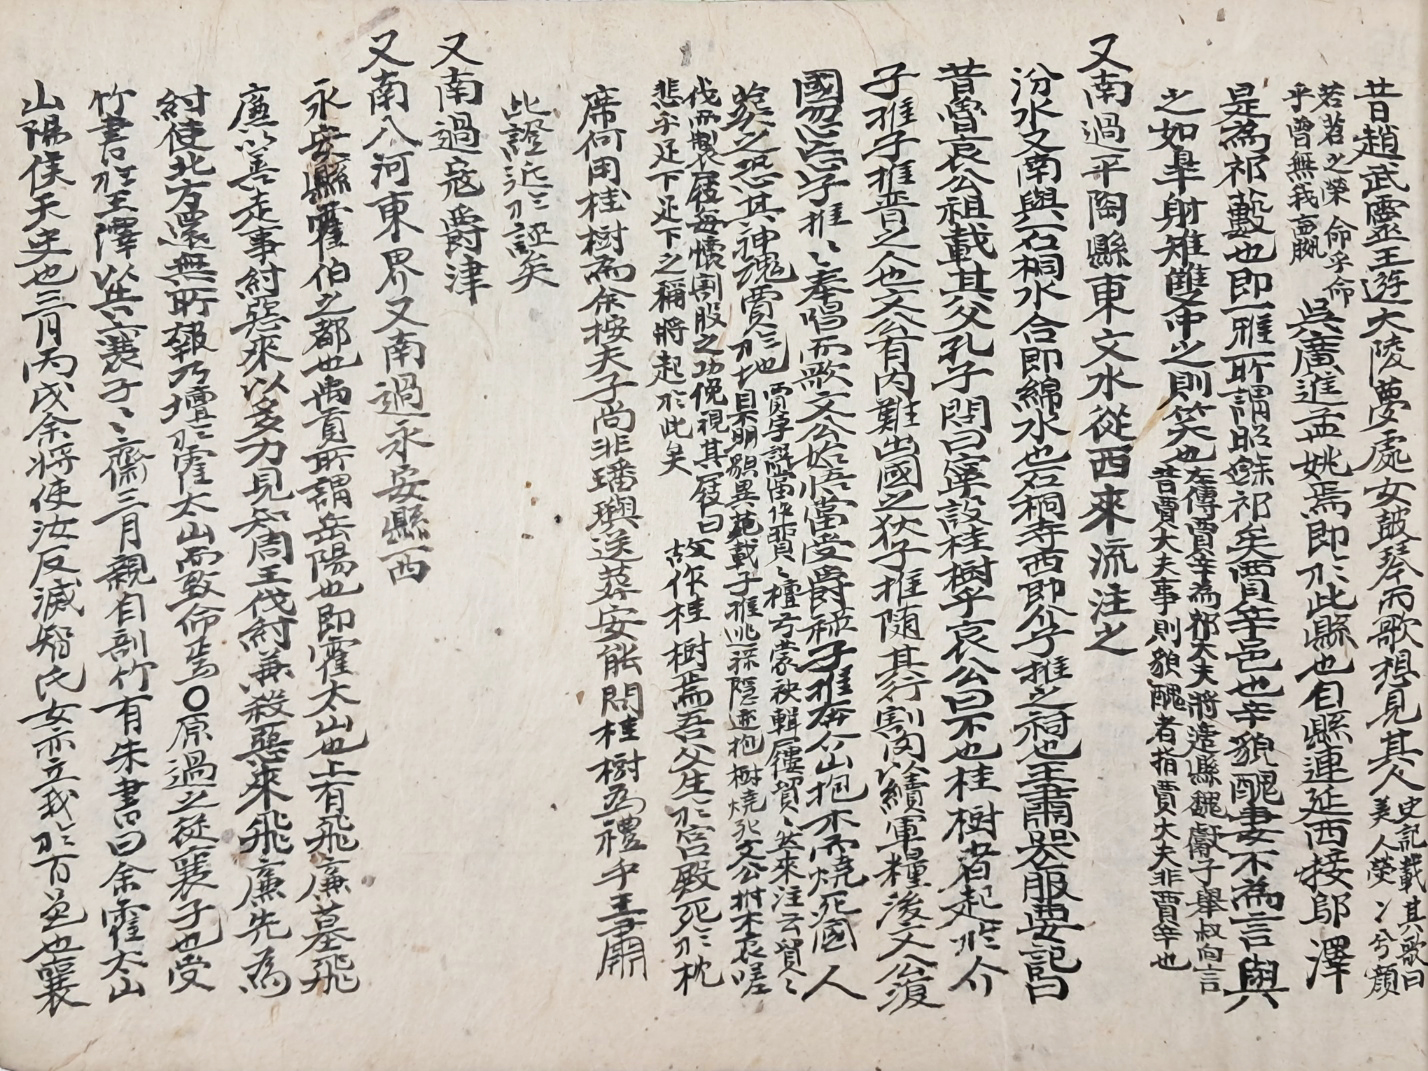 昔趙武靈王遊大陵夢處女鼓琴而歌想見其人史記載其歌曰美人熒々兮顏
若苕之榮命乎命乎曾無我嬴吳廣進孟姚焉即於此縣也自縣連延西接鄔澤
是為祁藪也即爾雅所謂昭余祁矣賈辛邑也辛貌醜妻不為言與
之如皐射雉雙中之則笑也左傳賈辛為祁大夫將適縣魏獻子舉叔向言昔賈大夫事則貌醜者指賈大夫非賈辛也
又南過平陶縣東文水從西來流注之
汾水又南與石桐水合即綿水也石桐寺西即介子推之祠也王肅喪服要記曰
昔魯哀公祖載其父孔子問曰寧設桂樹乎哀公曰不也桂樹者起於介
子推子推晋之人也文公有内難出國之狄子推随其行割肉以續軍糧後文公復
國忽忘子推々奉唱而歌文公始悟當受爵禄子推奔介山抱木而燒死國人
葬之恐其神魂賈於地賈字說當作賈々檀弓蒙袂輯屨貿々然來注云貿々是明貌異苑載子推逃祿隱迹抱樹燒死文公拊木哀嗟
伐而製屐每懷割股之功俛視其屐曰悲乎足下足下之稱將起於此矣故作桂樹焉吾父生於宮殿死於枕
席何用桂樹為余按夫子尚非璠璵送葬安能問桂樹為禮乎王肅
此證近於誣矣
又南過冠爵津
又南入河東界又南過永安縣西
永安縣霍伯之都也禹貢所謂岳陽也即霍太山也上有飛廉墓飛
廉以善走事紂惡來以多力見知周王伐紂兼殺惡來飛廉先為
紂使北方還無所報乃壇於霍太山而致命焉○原過之從襄子也受
竹書於王澤以告襄子々齋三月親自剖竹有朱書曰余霍太山
山陽侯天史也三月丙戌余將使汝反滅智氏女亦立我於百邑也襄